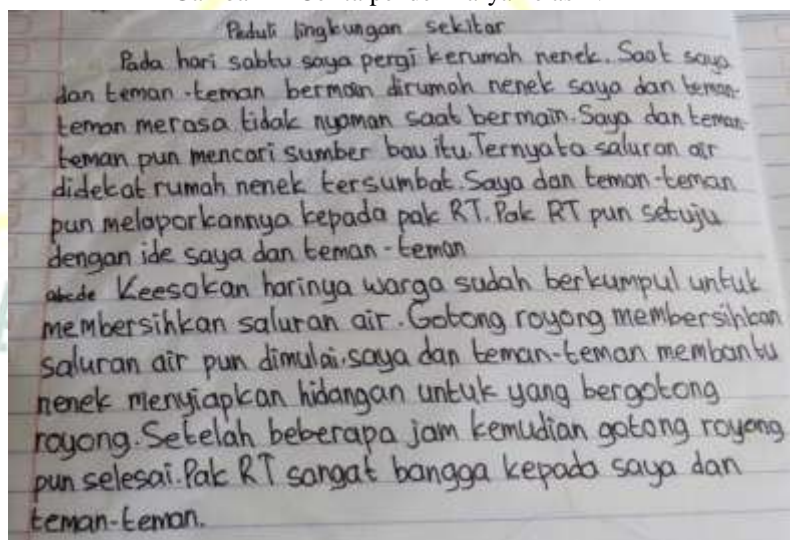 Peduli lingkungan sekitar
Pada hari sabtu saya pergi kerumah nenek. Saat saya
dan teman-teman bermain dirumah nenek saya dan teman-
teman merasa tidak nyaman saat bermain. Saya dan teman-
teman pun mencari sumber bau itu. Ternyata saluran air
didekat rumah nenek tersumbat. Saya dan teman-teman
pun melaporkannya kepada pak RT. Pak RT pun setuju
dengan ide saya dan teman-teman
Keesokan harinya warga sudah berkumpul untuk
membersihkan saluran air. Gotong royong membersihkan
saluran air pun dimulai. saya dan teman-teman membantu
nenek menyiapkan hidangan untuk yang bergotong
royong. Setelah beberapa jam kemudian gotong royong
pun selesai. Pak RT sangat bangga kepada saya dan
teman-teman.